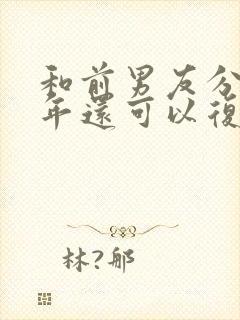 和前男友分
年還可以復
林?郍